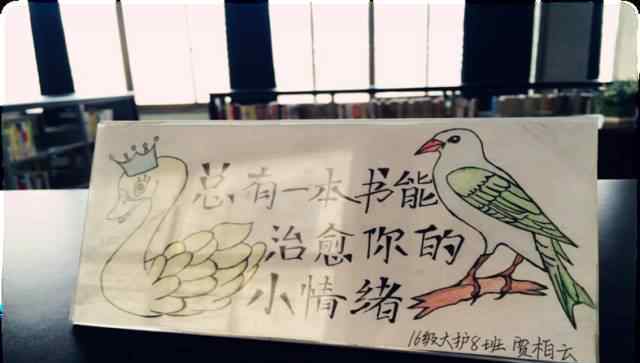 总有一本书能
治愈你的
小情绪
16级大护8班 贾柏云